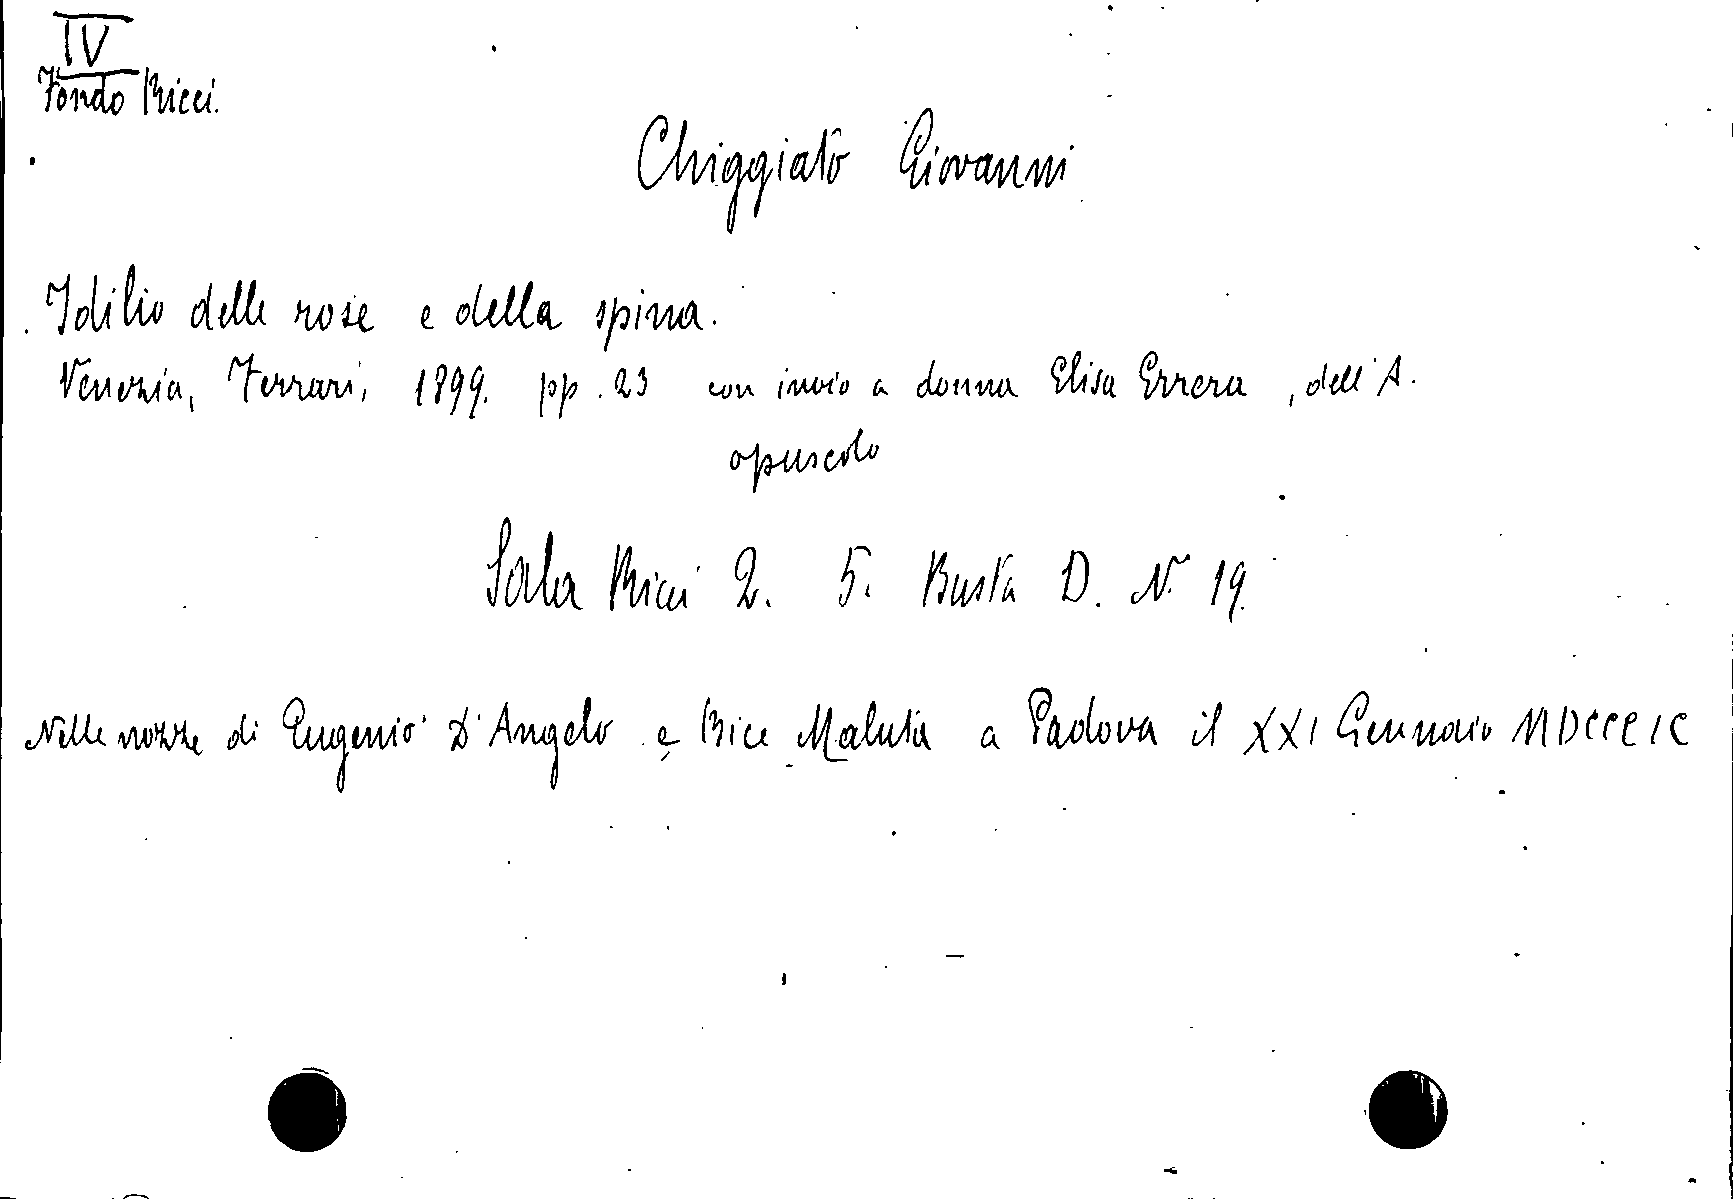 IV
Fondo Ricci.
Chiggiato Giovanni
Idilio delle rose e della spina.
Venezia, Ferrari, 1899. pp. 23 con invio a donna Elisa Errera, dell'A.
opuscolo
Sala Ricci 2. 5. Busta D. N. 19.
Nelle nozze di Eugenio D'Angelo e Bice Maluta a Padova il XXI Gennaio MDCCCIC